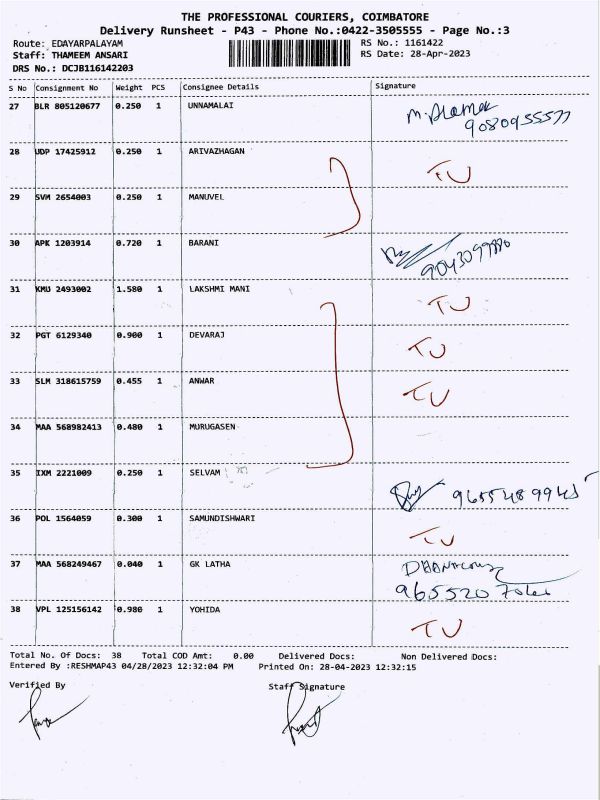 THE PROFESSIONAL COURIERS, COIMBATORE
Delivery Runsheet - P43 - Phone No.:0422-3505555 - Page No.:3
Route: EDAYARPALAYAM RS No.: 1161422
Staff: THAMEEM ANSARI RS Date: 28-Apr-2023
DRS No.: DCJB116142203
S No Consignment No Weight PCS Consignee Details Signature
27 BLR 805120677 0.250 1 UNNAMALAI
9080955577
28 UDP 17425912 0.250 1 ARIVAZHAGAN TU
29 SVM 2654003 0.250 1 MANUVEL
30 APK 1203914 0.720 1 BARANI
31 KMU 2493002 1.580 1 LAKSHMI MANI TU
32 PGT 6129340 0.900 1 DEVARAJ TU
33 SLM 318615759 0.455 1 ANWAR TU
34 MAA 568982413 0.480 1 MURUGASEN
35 IXM 2221009 0.250 1 SELVAM
36 POL 1564059 0.300 1 SAMUNDISHWARI TU
37 MAA 568249467 0.040 1 GK LATHA
965520
38 VPL 125156142 0.980 1 YOHIDA TU
Total No. Of Docs: 38 Total COD Amt: 0.00 Delivered Docs: Non Delivered Docs:
Entered By :RESHMAP43 04/28/2023 12:32:04 PM Printed On: 28-04-2023 12:32:15
Verified By Staff Signature